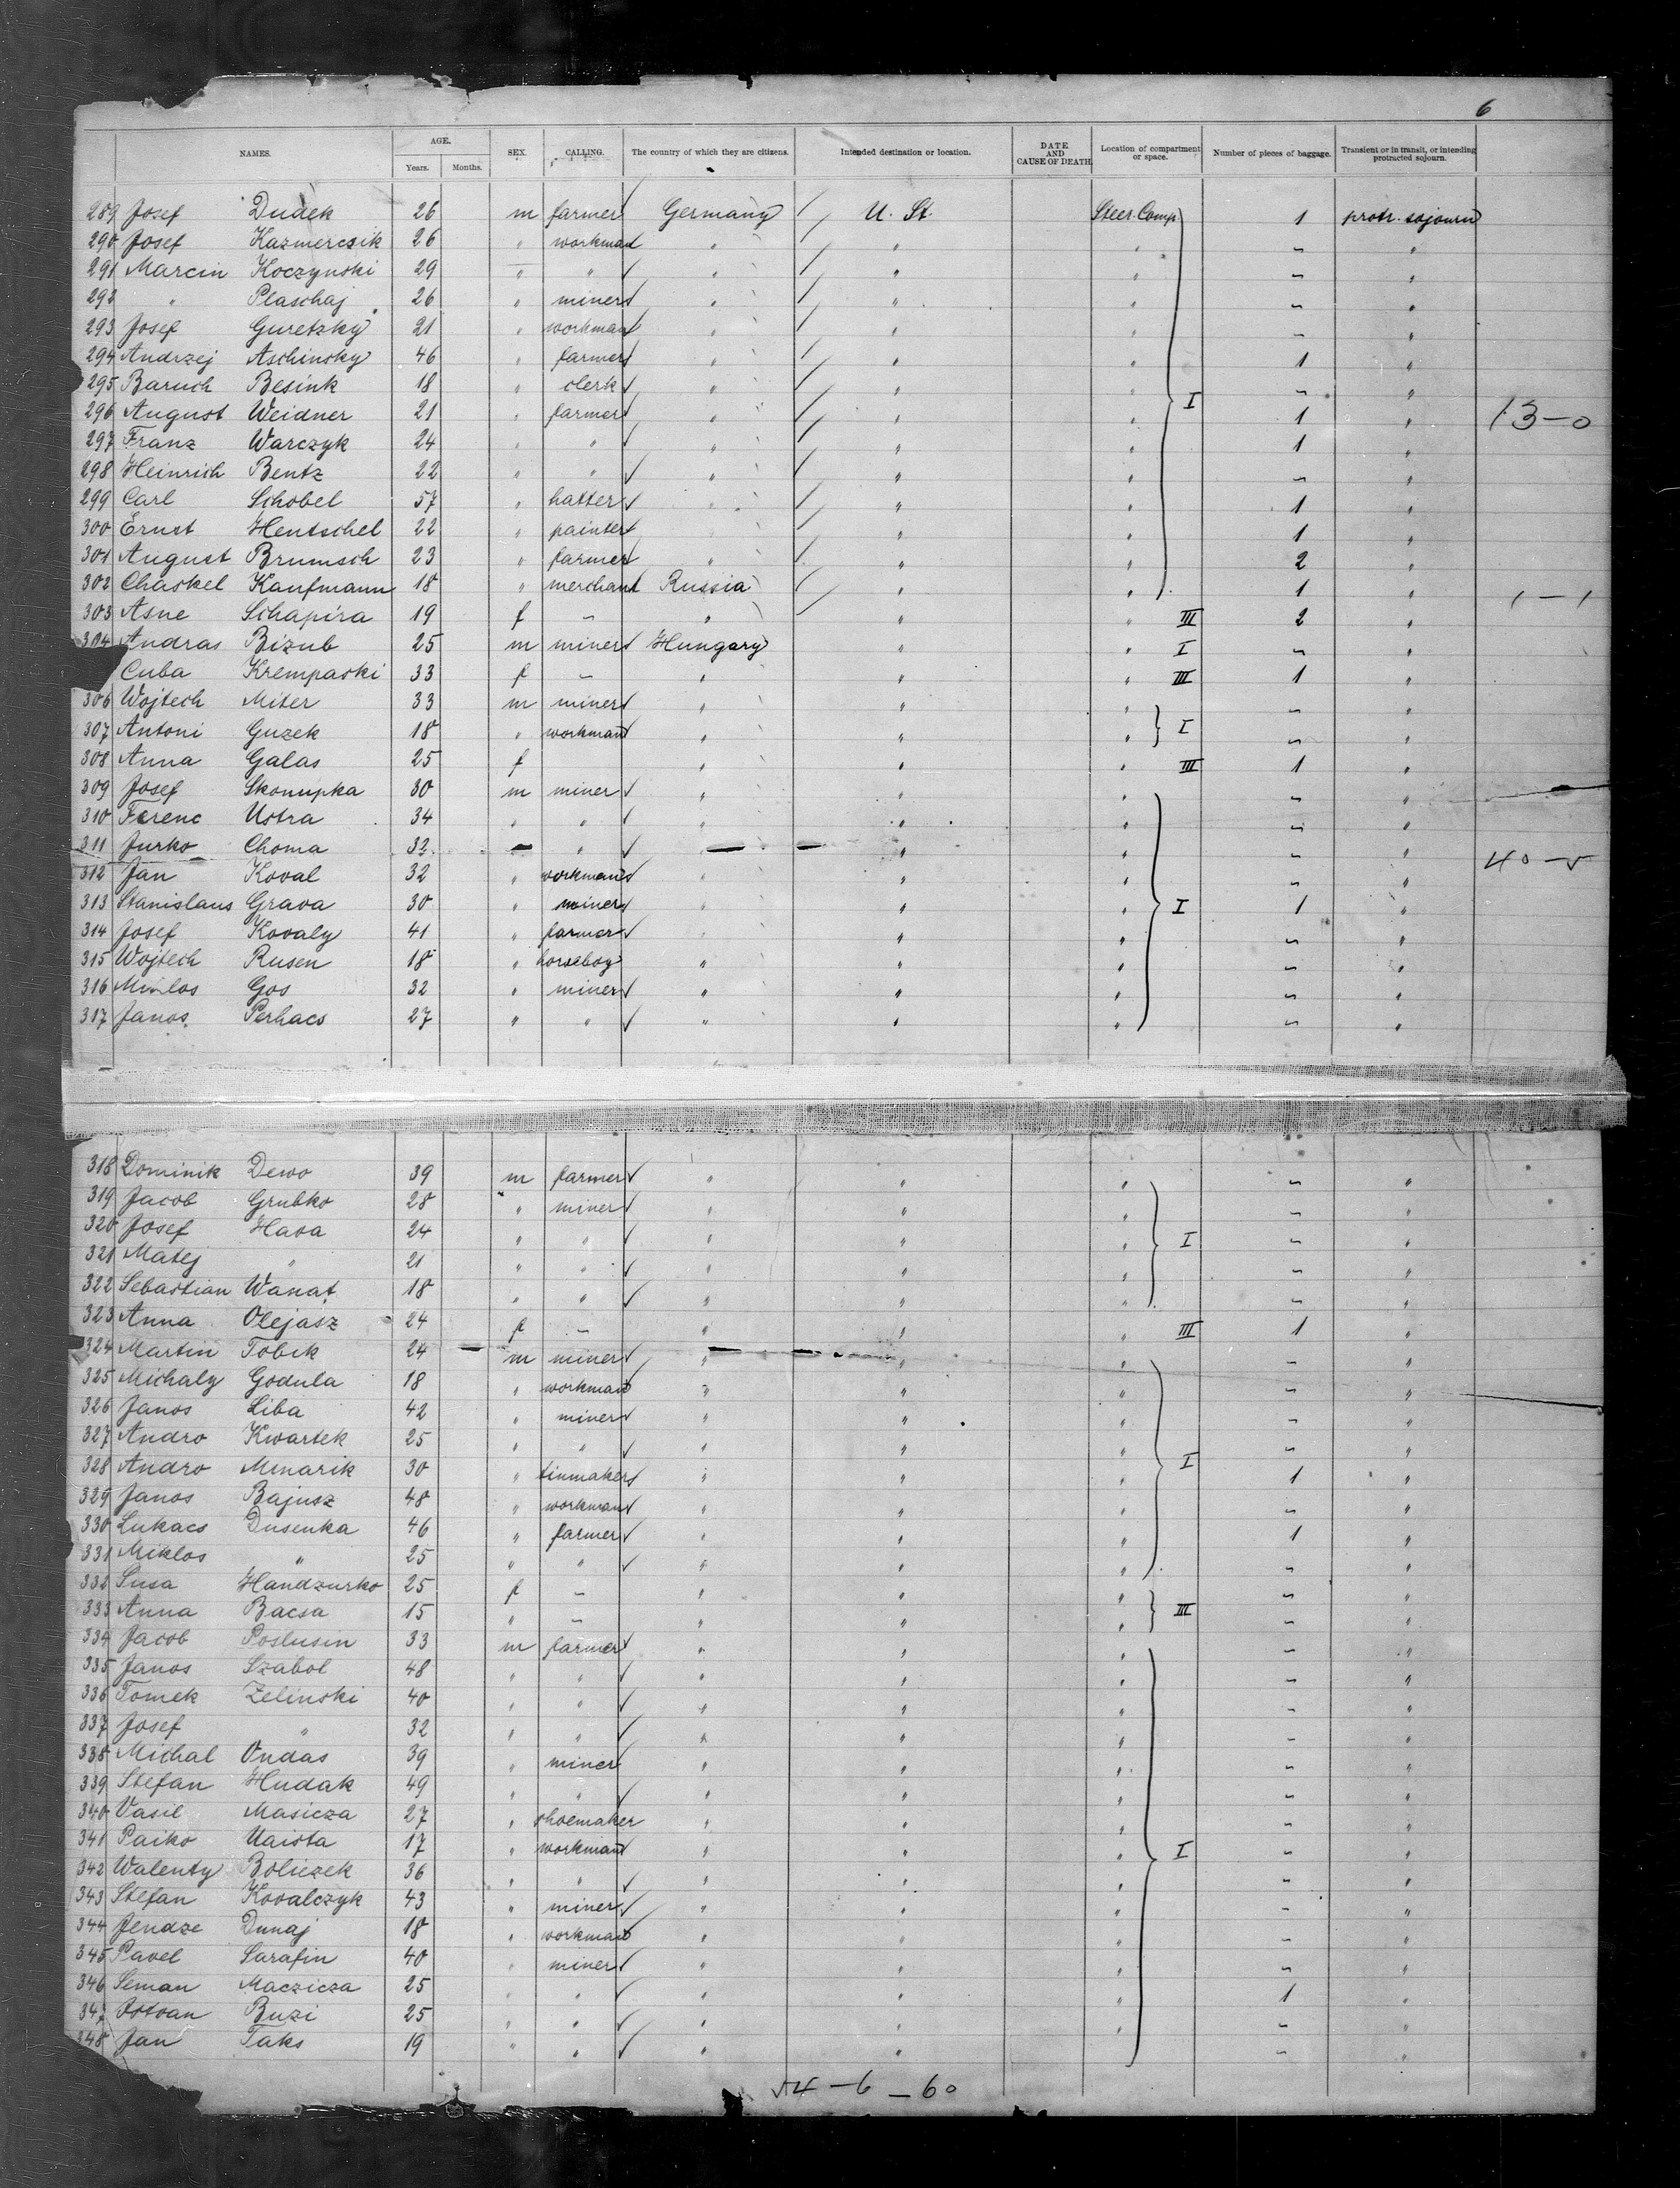 6
NAMES. AGE. SEX. CALLING. The country of which they are citizens. Intended destination or location. DATE AND CAUSE OF DEATH Location of compartment or space. Number of pieces of baggage. Transient or in transit, or intending protracted sojourn.
Years. Months.
289 Josef Dudek 26 m farmer Germany U. St. Steer. Comp. 1 protr. sojourn
290 Josef Kazmercsik 26 " workman " " " - "
291 Marcin Koczynski 29 " " " " " - "
292 " Plaschaj 26 " miner " " " - "
293 Josef Guretzky 21 " workman " " " - "
294 Andrzej Aschinsky 46 " farmer " " " 1 "
295 Baruch Besink 18 " clerk " " " - "
296 August Weidner 21 " farmer " " " I 1 " 13-0
297 Franz Warczyk 24 " " " " " 1 "
298 Heinrich Bentz 22 " " " " " - "
299 Carl Schobel 57 " hatter " " " 1 "
300 Ernst Hentschel 22 " painter " " 1 "
301 August Brumsch 23 " farmer " " " 2 "
302 Chaskel Kaufmann 18 " merchant Russia " " 1 " 1-1
303 Asne Schapira 19 f - " " " III 2 "
304 Andras Bizub 25 m miner Hungary " " I - "
Cuba Krempaski 33 f - " " " III 1 "
306 Wojtech Miter 33 m miner " " " - "
307 Antoni Guzek 18 " workman " " " I - "
308 Anna Galas 25 f " " " III 1 "
309 Josef Skonupka 30 m miner " " " - "
310 Ferenc Ustra 34 " " " " " - "
311 Jurko Choma 32 " " " - "
312 Jan Koval 32 " workman " " " - " 40-5
313 Stanislaus Grava 30 " miner " " " I 1 "
314 Josef Kovaly 41 " farmer " " " - "
315 Wojtech Rusen 18 " horseboy " " " - "
316 Gos 32 " miner " " " - "
317 Janos Perhacs 27 " " " " " - "
318 Dominik Dewo 39 m farmer " " " - "
319 Jacob Grubko 28 " miner " " " - "
320 Josef Hava 24 " " " " " I - "
321 Matej " 21 " " " " " - "
322 Sebastian Wanat 18 " " " " " - "
323 Anna Olejasz 24 f - " " " III 1 "
324 Martin Tobik 24 m miner " " " - "
325 Michaly Godula 18 " workman " " " - "
326 Janos Liba 42 " miner " " " - "
327 Andro Kwartek 25 " " " " " - "
328 Andro Minarik 30 " tinmaker " " " I 1 "
329 Janos Bajusz 48 " workman " " " - "
330 Lukacs Dusenka 46 " farmer " " " 1 "
331 Miklos " 25 " " " " " - "
332 Susa Handzurko 25 f - " " " - "
333 Anna Bacsa 15 " - " " " III - "
334 Jacob Poslusin 33 m farmer " " " - "
335 Janos Szabol 48 " " " " " - "
336 Tomek Zelinski 40 " " " " " - "
337 Josef " 32 " " " " " - "
338 Michal Ondas 39 " miner " " " - "
339 Stefan Hudak 49 " " " " " - "
340 Vasil Masicza 27 " shoemaker " " " - "
341 Paiko Uaista 17 " workman " " " I - "
342 Walenty Boliczek 36 " " " " " - "
343 Stefan Kovalczyk 43 " miner " " " - "
344 Jendze Dunaj 18 " workman " " " - "
345 Pavel Sarafin 40 " miner " " " - "
346 Seman Maczicza 25 " " " " " 1 "
347 Istvan Buzi 25 " " " " " - "
348 Jan Taks 19 " " " " - "
54-6-60